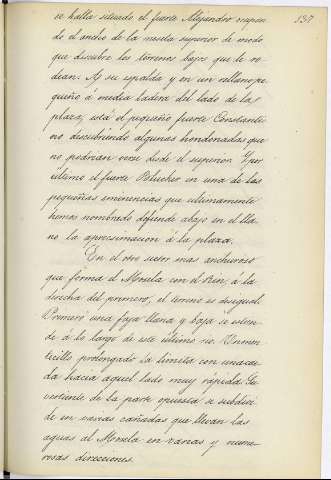 137
se halla situado el fuerte Alejandro
do el ancho de la meseta superior de modo
que descubre los terrenos bajos que le ro-
dean. A su espalda y en un rellano pe-
queño á media ladera del lado de la
plaza, está el pequeño fuerte Constanti-
no descubriendo algunas hondonadas que
no podrian verse desde el superior. Y por
ultimo el fuerte Blucher en una de las
pequeñas eminencias que ultimamente
hemos nombrado defiende abajo en el lla-
no la aproximacion á la plaza.
En el otro sector mas anchuroso
que forma el Mosela con el Rin, á la
derecha del primero, el terreno es desigual.
Primero una faja llana y baja se estien-
de á lo largo de este último rio. Un mon-
tecillo prolongado la limita con una cai-
da hacia aquel lado muy rápida. La
vertiente de la parte opuesta se subdivi-
de en varias cañadas que llevan las
aguas al Mosela en varias y nume-
rosas direcciones.